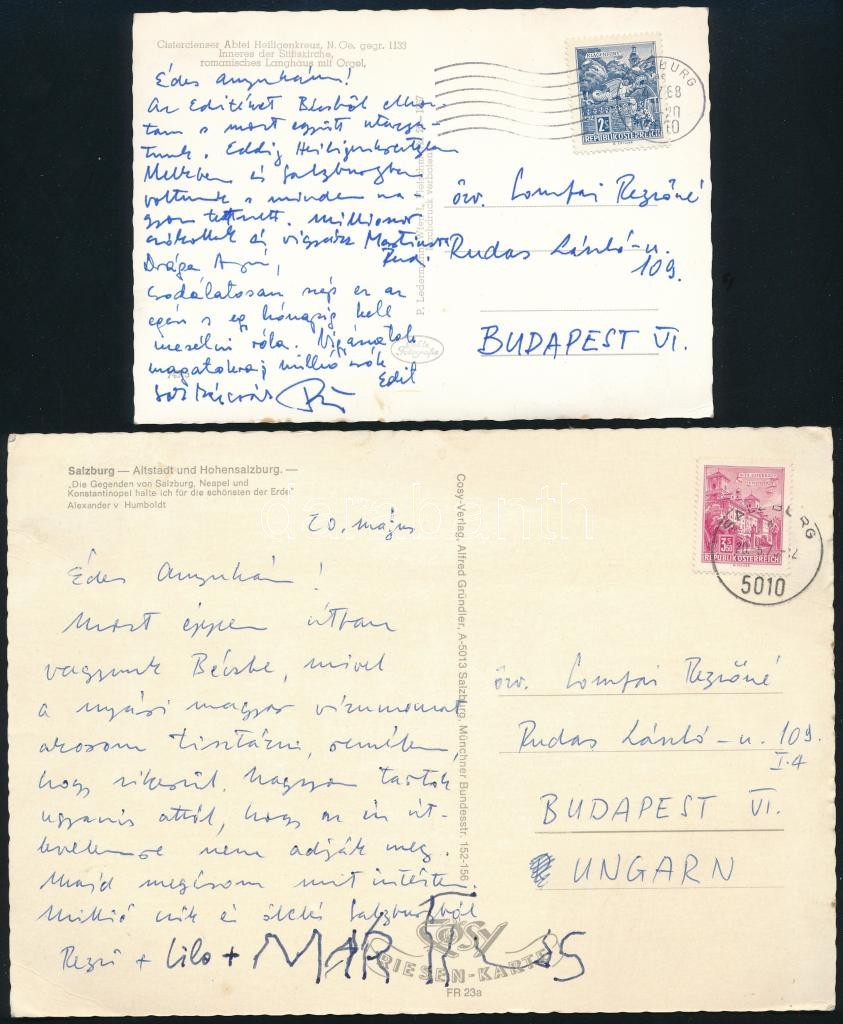 Cistercienser Abtei Heiligenkreuz, N. Oe. gegr. 1133
Inneres der Stiftskirche,
romanisches Langhaus mit Orgel,
Édes anyukám!
Az Editéket Bécsből elhoz-
tam s most együtt utazga-
tunk. Eddig Heiligenkreutzben
Melkben és Salzburgban
voltunk s minden na-
gyon tetszett. Milliószor
csókollak és vigyázz Martinura
Rud.
Drága Anyú,
csodálatosan szép ez az
egész s egy hónapig kell
mesélni róla. Vigyázzatok
magatokra; millió csók
Edit
P. Ledermann, Wien I,
Nachdruck verboten
Echte Fotografie
KLAGENFURT
2S
REPUBLIK ÖSTERREICH
özv. Lomfai Rezsőné
Rudas László-u.
109.
BUDAPEST VI.
Salzburg — Altstadt und Hohensalzburg. —
„Die Gegenden von Salzburg, Neapel und
Konstantinopel halte ich für die schönsten der Erde"
Alexander v Humboldt
20. május
Édes Anyukám!
Most éppen útban
vagyunk Bécsbe, mivel
a nyári magyar vízumomat
akarom tisztázni, remélem,
hogy sikerül. Nagyon tartok
ugyanis attól, hogy az én út-
levelemre nem adják meg.
Majd megírom mit intéztem.
Millió csók és ölelés Salzburgból
Rezsű + Lilo + MARTINUS
Cosy-Verlag, Alfred Gründler, A-5013 Salzburg, Münchner Bundesstr. 152-156
Cosy
RIESEN-KARTE
FR 23a
3.50
REPUBLIK ÖSTERREICH
SALZBURG
5010
özv. Lomfai Rezsőné
Rudas László-u. 109.
I.4
BUDAPEST VI.
UNGARN
darabanth